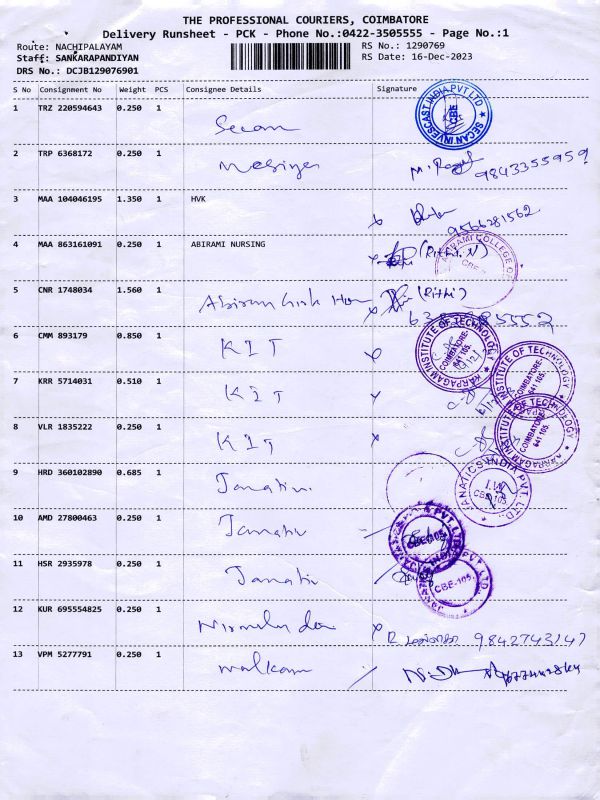 THE PROFESSIONAL COURIERS, COIMBATORE
Delivery Runsheet - PCK - Phone No.:0422-3505555 - Page No.:1
Route: NACHIPALAYAM
Staff: SANKARAPANDIYAN
DRS No.: DCJB129076901
RS No.: 1290769
RS Date: 16-Dec-2023
S No Consignment No Weight PCS Consignee Details Signature
1 TRZ 220594643 0.250 1 Secan
SECAN INVESCAST INDIA PVT LTD CBE
2 TRP 6368172 0.250 1
9843355959
3 MAA 104046195 1.350 1 HVK
9566281562
4 MAA 863161091 0.250 1 ABIRAMI NURSING (Rithi. N)
5 CNR 1748034 1.560 1 (Rithi)
6 CMM 893179 0.850 1 KIT
KARPAGAM INSTITUTE OF TECHNOLOGY COIMBATORE- 641 105.
7 KRR 5714031 0.510 1 KIT
KARPAGAM INSTITUTE OF TECHNOLOGY COIMBATORE- 641 105.
8 VLR 1835222 0.250 1 KIT
KARPAGAM INSTITUTE OF TECHNOLOGY COIMBATORE- 641 105.
9 HRD 360102890 0.685 1 Janatics
JANATICS INDIA PVT. LTD I.W CBE-105.
10 AMD 27800463 0.250 1 Janatic
CBE-105.
11 HSR 2935978 0.250 1 Janatic
PVT. LTD. CBE-105.
12 KUR 695554825 0.250 1
9842743147
13 VPM 5277791 0.250 1 walkam